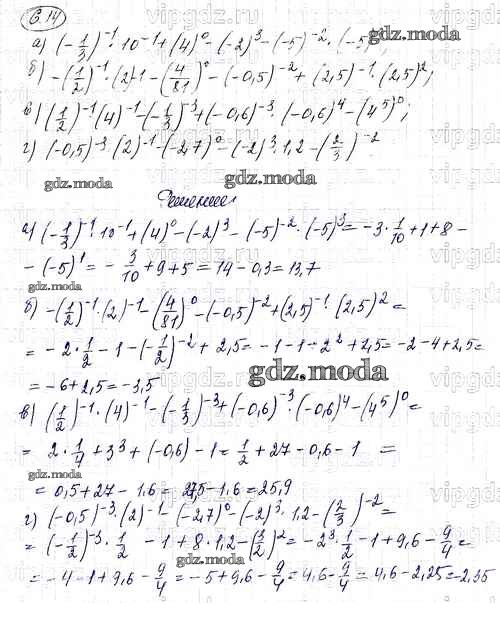 6.14
а) (-1/3)^-1 · 10^-1 + (4)^0 - (-2)^3 - (-5)^-2 · (-5)^3;
б) -(1/2)^-1 · (2)^-1 - (4/81)^0 - (-0,5)^-2 + (2,5)^-1 · (2,5)^2;
в) (1/2)^-1 · (4)^-1 - (-1/3)^-3 + (-0,6)^-3 · (-0,6)^4 - (4^5)^0;
г) (-0,5)^-3 · (2)^-1 - (-2,7)^0 - (-2)^3 · 1,2 - (2/3)^-2
gdz.moda
gdz.moda
Решение
а) (-1/3)^-1 · 10^-1 + (4)^0 - (-2)^3 - (-5)^-2 · (-5)^3 = -3 · 1/10 + 1 + 8 -
- (-5)^1 = - 3/10 + 9 + 5 = 14 - 0,3 = 13,7
gdz.moda
б) -(1/2)^-1 · (2)^-1 - (4/81)^0 - (-0,5)^-2 + (2,5)^-1 · (2,5)^2 =
= -2 · 1/2 - 1 - (-1/2)^-2 + 2,5 = -1 - 1 - 2^2 + 2,5 = -2 - 4 + 2,5 =
gdz.moda
= -6 + 2,5 = -3,5
gdz.moda
в) (1/2)^-1 · (4)^-1 - (-1/3)^-3 + (-0,6)^-3 · (-0,6)^4 - (4^5)^0 =
= 2 · 1/4 + 3^3 + (-0,6) - 1 = 1/2 + 27 - 0,6 - 1 =
gdz.moda
= 0,5 + 27 - 1,6 = 27,5 - 1,6 = 25,9
г) (-0,5)^-3 · (2)^-1 - (-2,7)^0 - (-2)^3 · 1,2 - (2/3)^-2 =
= (-1/2)^-3 · 1/2 - 1 + 8 · 1,2 - (3/2)^2 = -2^3 · 1/2 - 1 + 9,6 - 9/4 =
gdz.moda
gdz.moda
= -4 - 1 + 9,6 - 9/4 = -5 + 9,6 - 9/4 = 4,6 - 9/4 = 4,6 - 2,25 = -2,35